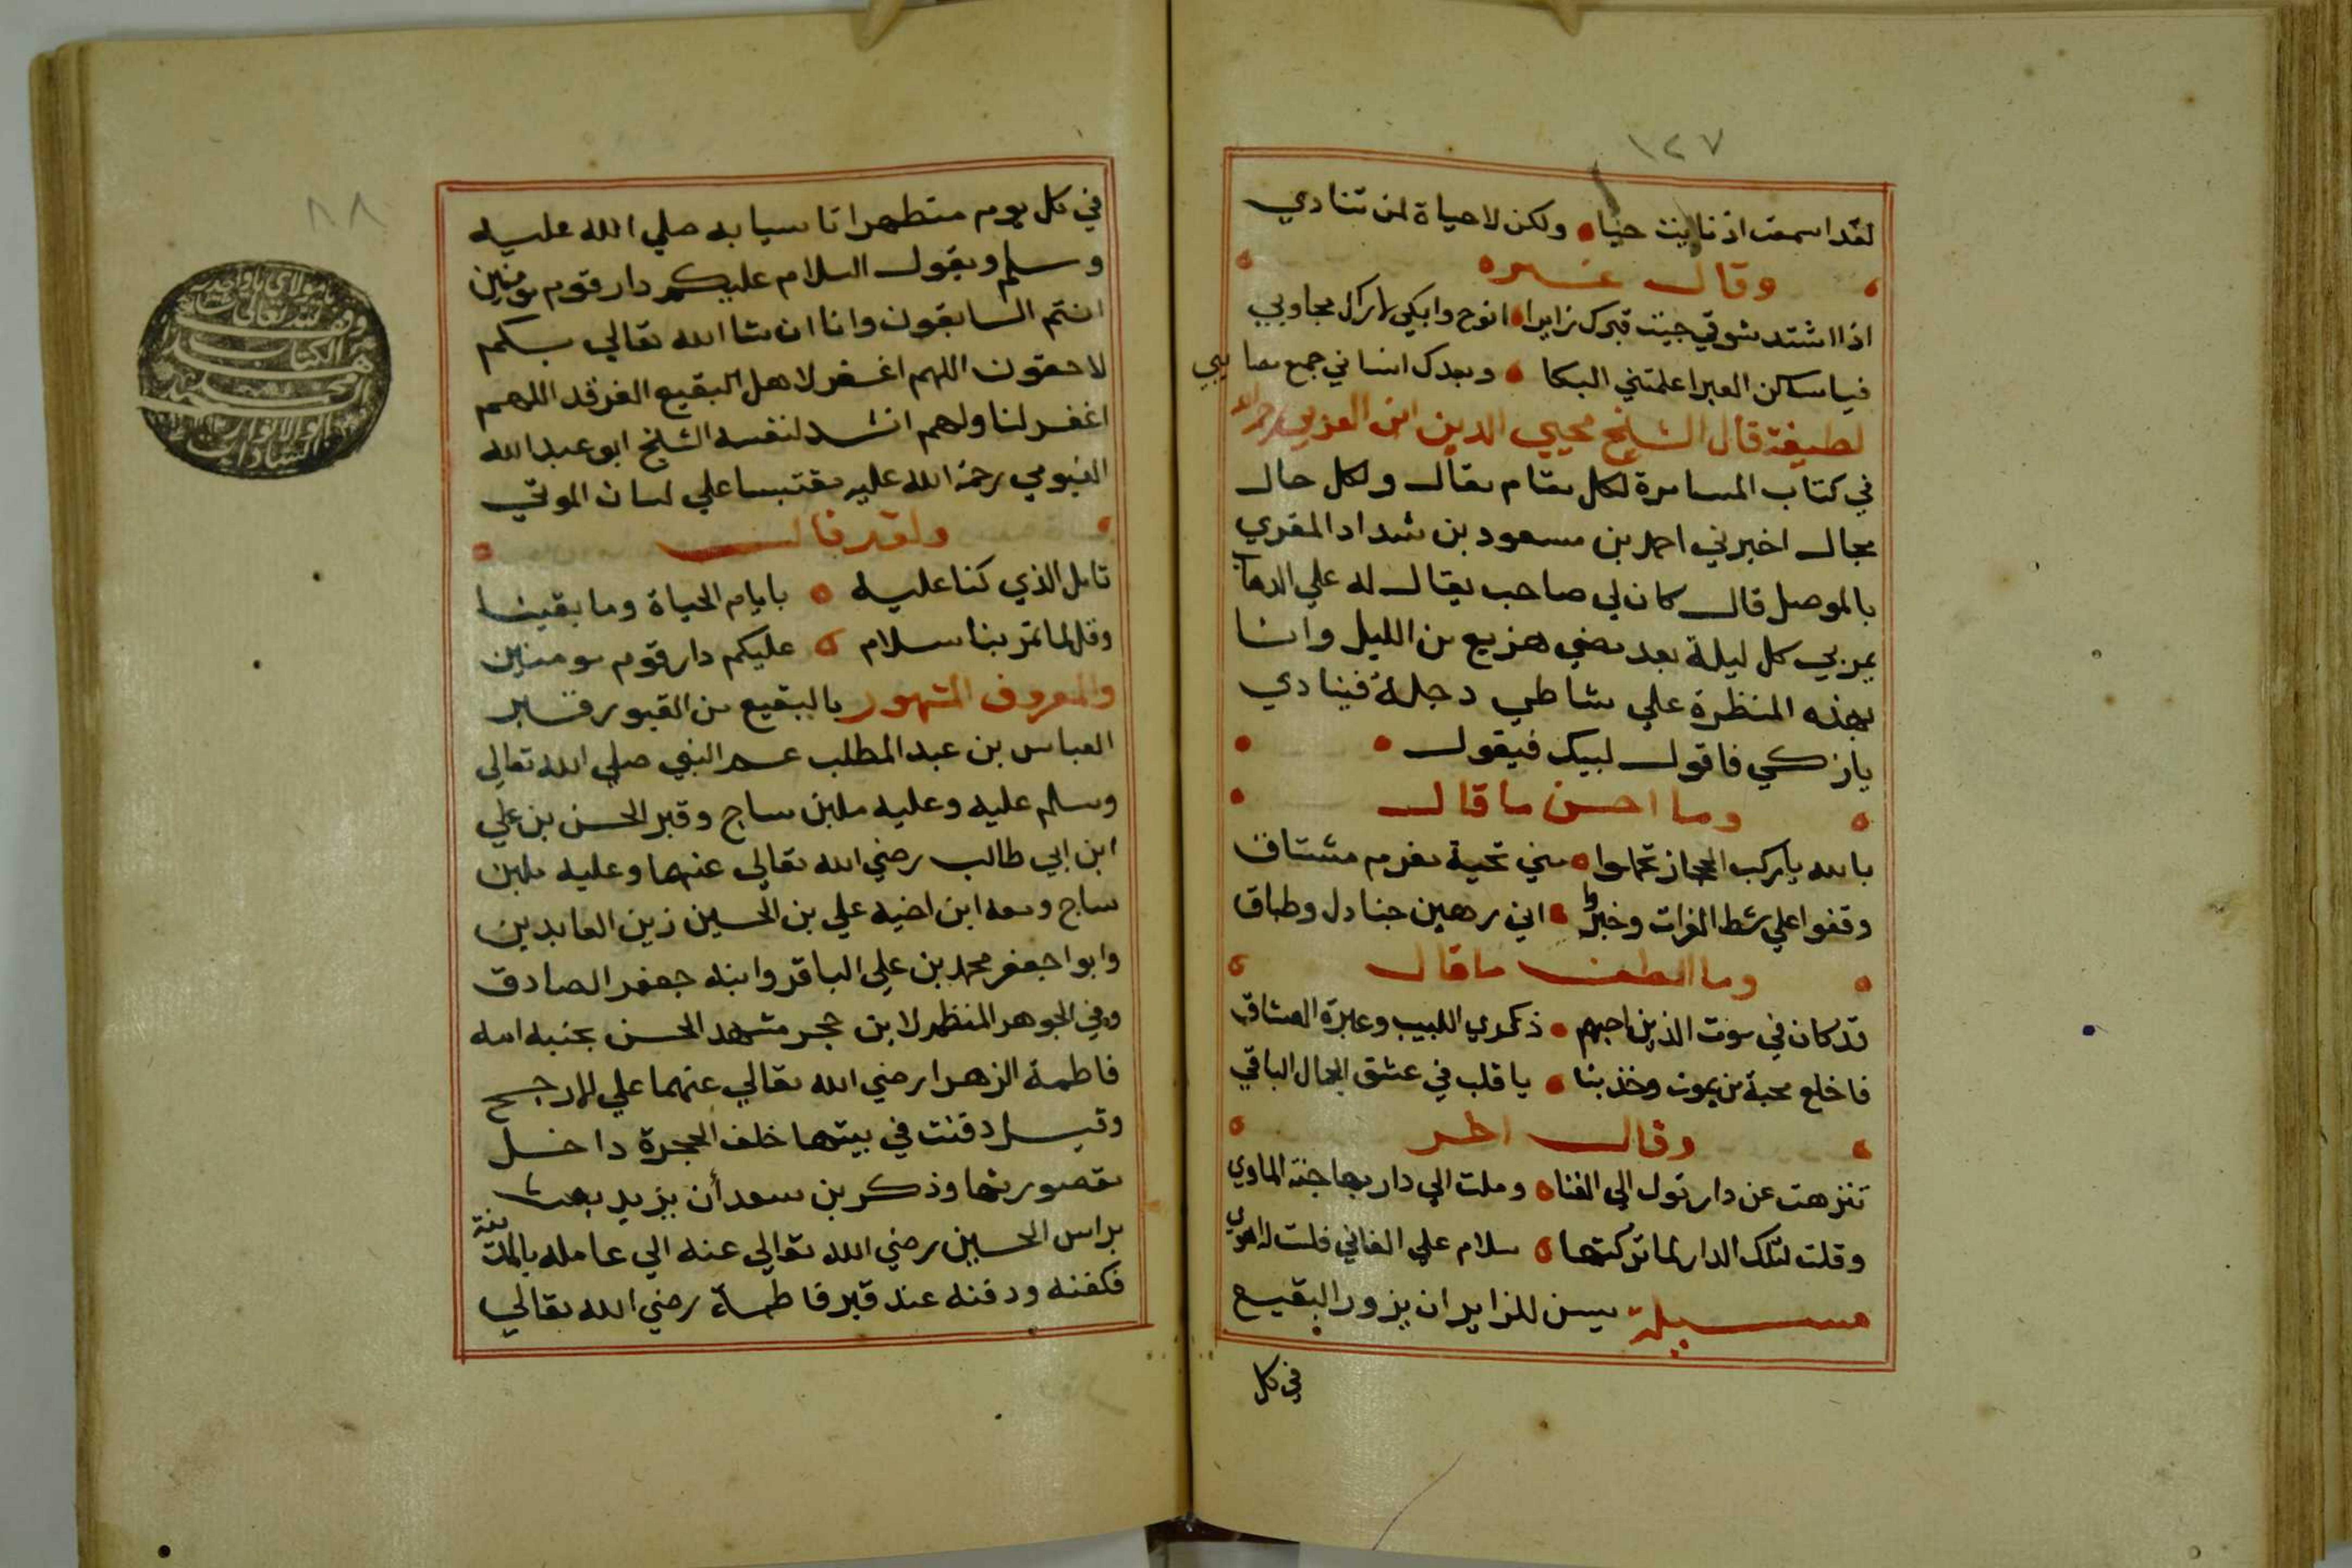 ١٢٧
لقد اسمعت اذ ناديت حيا ولكن لا حياة لمن تنادي
وقال غيره
اذا اشتد شوقي جيت قبرك زايرا انوح وابكي لا اراك مجاوبي
فيا ساكن الغبرا علمتني البكا وبعدك انساني جميع مصايبي
لطيفة قال الشيخ محيي الدين ابن العربي رحمه الله
في كتاب المسامرة لكل مقام مقال ولكل حال
مجال اخبرني احمد بن مسعود بن شداد المقري
بالموصل قال كان لي صاحب يقال له علي
يمر بي كل ليلة بعد مضي هزيع من الليل وانا
بهذه المنظرة علي شاطي دجلة فينادي
يا زكي فاقول لبيك فيقول
وما احسن ما قال
بالله يا ركب الحجاز تحملوا مني تحية مغرم مشتاق
وقفوا علي شط الفرات وخبروا اني رهين جنادل وطباق
وما الطف ما قال
قد كان في موت الذين احبهم ذكري اللبيب وعبرة العشاق
فاخلع محبة من يموت وخذ بنا يا قلب في عشق الجمال الباقي
وقال اخر
تنزهت عن دار تول الي الفنا وملت الي دار بها جنة الماوي
وقلت لتلك الدار لما تركتها سلام علي الفاني فلست له اهوي
مسيلة يسن للزاير ان يزور البقيع
في كل
٨٨
في كل يوم متطهرا تاسيا به صلي الله عليه
وسلم ويقول السلام عليكم دار قوم مومنين
انتم السابقون وانا ان شا الله تعالي بكم
لاحقون اللهم اغفر لاهل البقيع الغرقد اللهم
اغفر لنا ولهم انشد لنفسه الشيخ ابو عبد الله
الفيومي رحمة الله عليه مقتبسا علي لسان الموتي
ولقد قال
تامل الذي كنا عليه بايام الحياة وما بقينا
وقل لما تمر بنا سلام عليكم دار قوم مومنين
والمعروف المشهور بالبقيع من القبور قبر
العباس بن عبد المطلب عم النبي صلي الله تعالي
وسلم عليه وعليه ملبن ساج وقبر الحسن بن علي
ابن ابي طالب رضي الله تعالي عنهما وعليه ملبن
ساج ومعه ابن اخيه علي بن الحسين زين العابدين
وابوا جعفر محمد بن علي الباقر وابنه جعفر الصادق
وفي الجوهر المنظم لابن حجر مشهد الحسن بجنبه امه
فاطمة الزهرا رضي الله تعالي عنهما علي الارجح
وقيل دفنت في بيتها خلف الحجرة داخل
مقصورتها وذكر بن سعد أن يزيد بعث
براس الحسين رضي الله تعالي عنه الي عامله بالمدينة
فكفنه ودفنه عند قبر فاطمة رضي الله تعالي